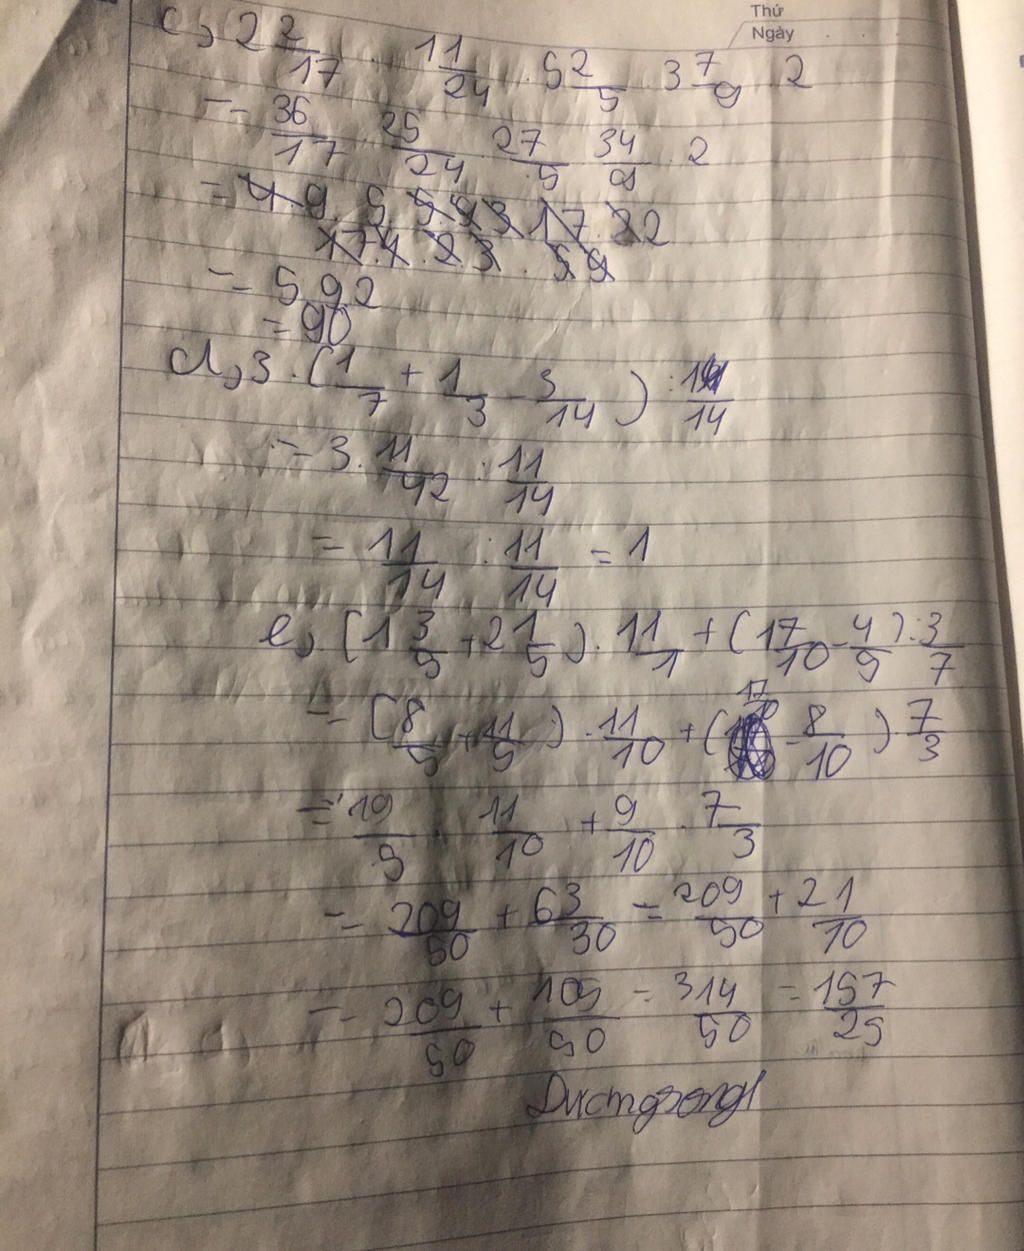 Thứ
Ngày
c, 2 2/17 . 1 1/24 . 5 2/5 . 3 7/9 . 2
= 36/17 . 25/24 . 27/5 . 34/9 . 2
= 5.9.2
= 90
d, 3 . (1/7 + 1/3 - 3/14) : 11/14
= 3 . 11/42 : 11/14
= 11/14 : 11/14 = 1
e, (1 3/5 + 2 1/5) . 11/1 + (17/10 - 4/5) : 3/7
= (8/5 + 11/5) . 11/10 + (17/10 - 8/10) . 7/3
= 19/5 . 11/10 + 9/10 . 7/3
= 209/50 + 63/30 = 209/50 + 21/10
= 209/50 + 105/50 = 314/50 = 157/25